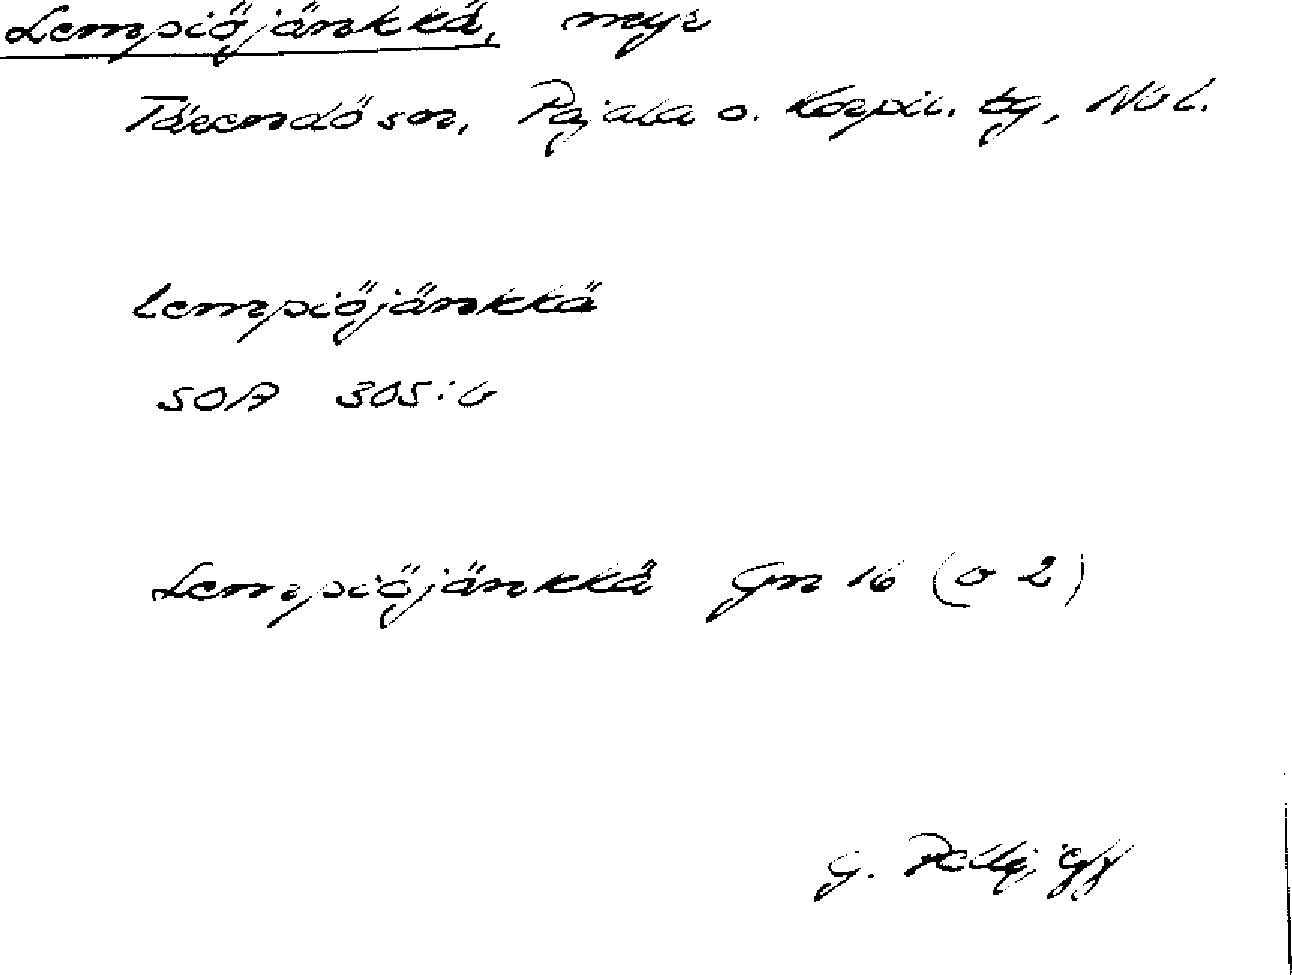 Lempiöjänkkä, myr
Tärendö sn, Pajala o. Korpil. tg, Nbl.
Lempiöjänkkä
SOA 305:6
Lempiöjänkkä Gn 16 (o 2)
G.